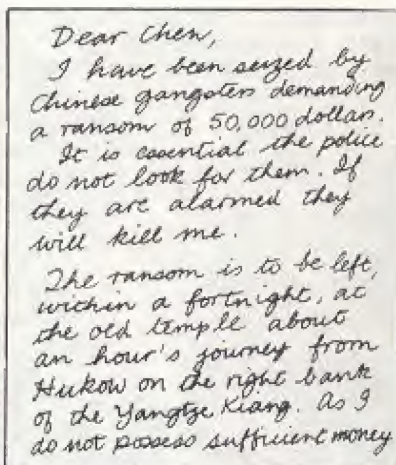 Dear Chen,
I have been seized by
Chinese gangsters demanding
a ransom of 50,000 dollars.
It is essential the police
do not look for them. If
they are alarmed they
will kill me.
The ransom is to be left,
within a fortnight, at
the old temple about
an hour's journey from
Hukow on the right bank
of the Yangtze Kiang. As I
do not possess sufficient money